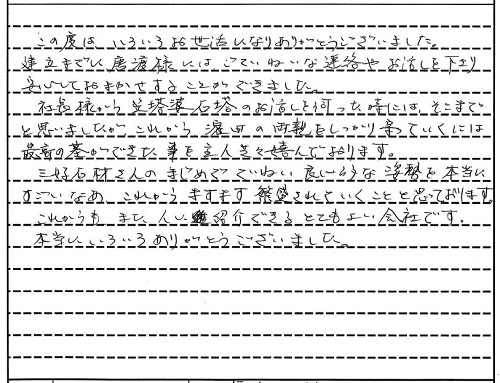 この度は いろいろお世話になりありがとうございました。
建立までに 唐渡様には ごていねいな連絡や お話しを下さり
安心しておまかせすることができました。
社長様から 卒塔婆石塔のお話しを伺った時には、そこまで
と思いましたが これから 濱田の両親をしっかり守っていくには
最高の墓ができた事を主人共々嬉んでおります。
三好石材さんの まじめで ていねい 良い 姿勢を 本当に
すごいなあ、これから ますます 繁盛されていくことと思っております
これからも また 人に 紹介できる とてもよい 会社です。
本当に いろいろ ありがとうございました。